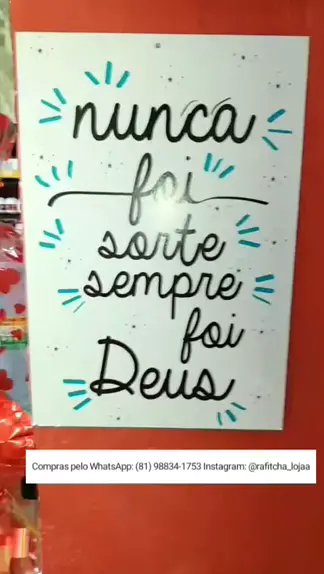 nunca
foi
sorte
sempre
foi
Deus
Compras pelo WhatsApp: (81) 98834-1753 Instagram: @rafitcha_lojaa